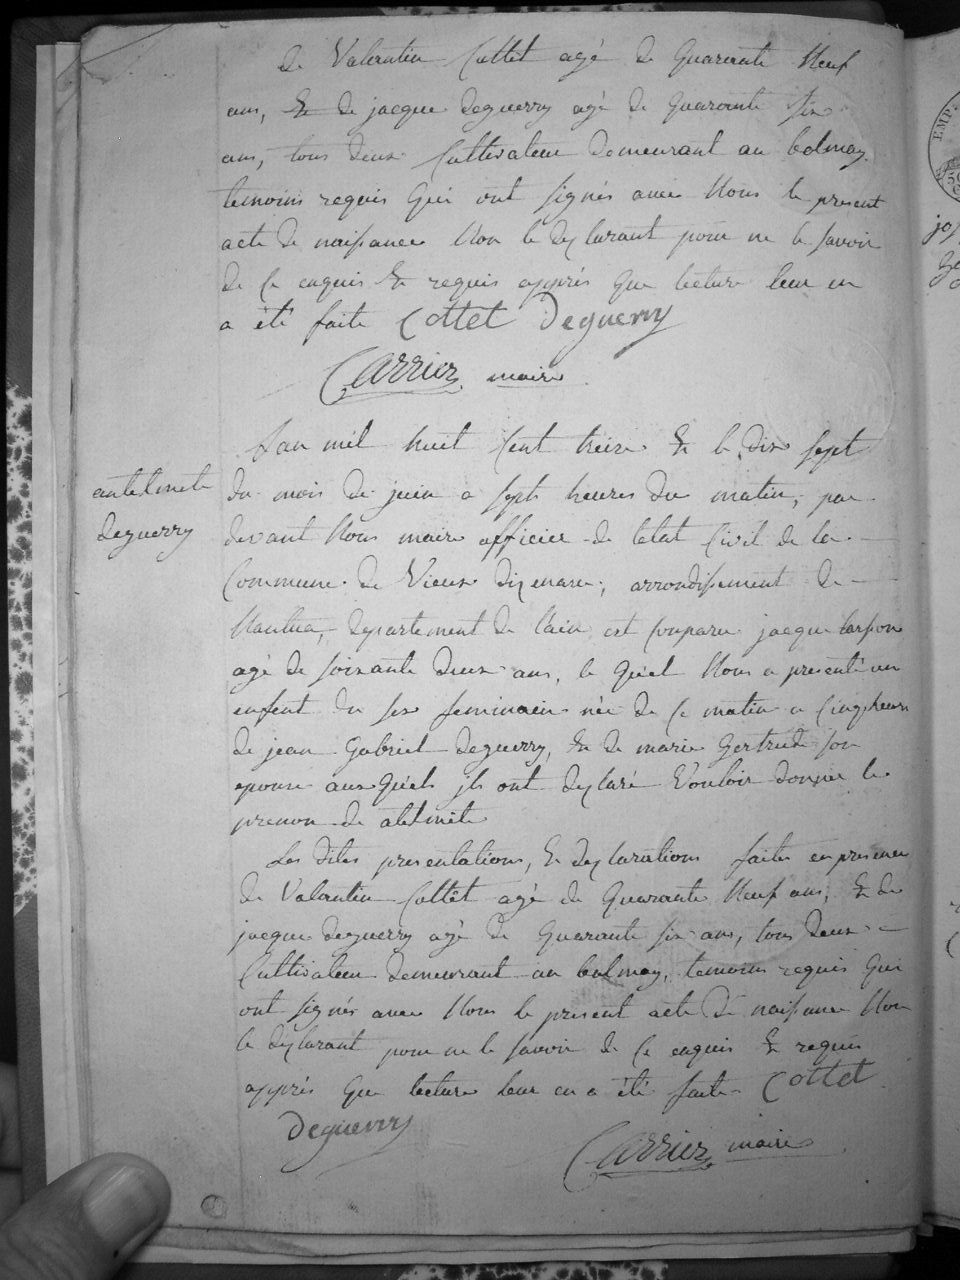 de Valentin Cottet agé de quarante neuf
ans, & de jacque deguerry agé de quarante six
ans, tous deux Cultivateur demeurant au balmay
temoins requis qui ont signés avec Nous le present
acte de naissance Non le declarant pour ne le savoir
de ce enquis & requis apprés que lecture leur en
a été faite Cottet Deguerry
Carrier maire
Lan mil huit Cent treize & le dix sept
du mois de juin a sept heures du matin, par
devant Nous maire officier de letat Civil de la
Commune de Vieux dizenave, arrondissement de
Nantua, departement de lain est comparu jacque
agé de soixante deux ans, le quel Nous a presenté un
enfent du sex feminain née de ce matin a cinq heurs
de jean Gabriel deguerry, & de marie Gertrude son
epouse aux quels ils ont declaré Vouloir donner le
prenon de
Les dites presentations, & declarations faites en presence
de Valentin Cottet agé de quarante Neuf ans, & de
jacque deguerry agé de quarante six ans, tous deux
Cultivateur demeurant au balmay, temoins requis qui
ont signés avec Nous le present acte de naissance Non
le declarant pour ne le savoir de ce enquis & requis
apprés que lecture leur en a été faite Cottet
Deguerry
Carrier maire
deguerry
EMP.